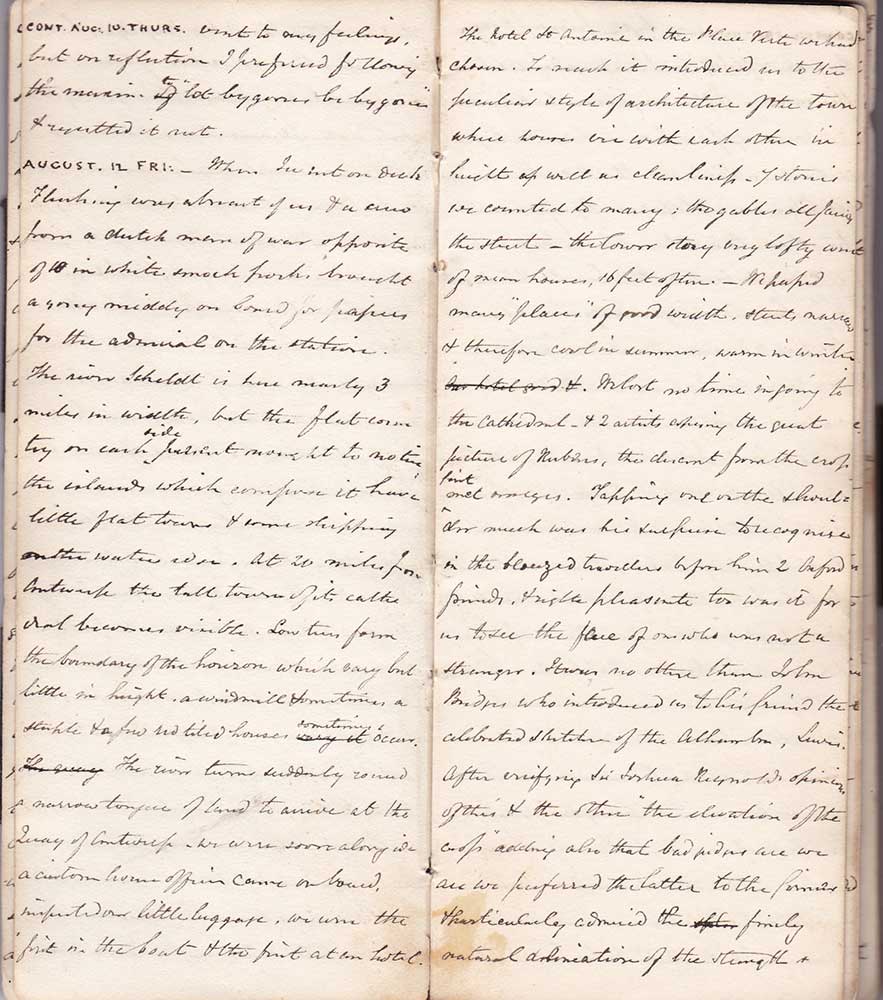 CONT. AUG. 10. THURS. vent to my feelings,
but on reflection I preferred following
the maxim to "let bygones be bygones"
& regretted it not.
AUGUST. 12 FRI: - When I went on deck
Flushing was abreast of us & a
from a dutch man of war opposite
of 10 in white smock frocks brought
a young middy on board for papers
for the admiral on the station.
The river Scheldt is here nearly 3
miles in width, but the flat coun
try on each side present nought to notice
the islands which compose it have
little flat towns & some shipping
on the water edge. At 20 miles from
Antwerp the tall tower of its cathe
dral becomes visible. Low trees form
the boundary of the horizon which vary but
little in height, a windmill & sometimes a
steeple & a few red tiled houses sometimes vary it occur.
The quay The river turns suddenly round
a narrow tongue of land to arrive at the
Quay of Antwerp - we were soon alongside
a custom house officer came on board,
inspected our little luggage, we were the
first in the boat & the first at an hotel.
The Hotel St Antoine in the Place Verte we had
chosen. To reach it introduced us to the
peculiar style of architecture of the town
where houses vie with each other in
height as well as cleanliness - 7 stories
we counted to many: the gables all facing
the street - the lower story very lofty
of mean houses, 16 feet often. - We passed
many "places" of good width, streets narrow
& therefore cool in summer, warm in winter
Our hotel good &. We lost no time in going to
the Cathedral - & 2 artists copying the great
picture of Rubens, the descent from the cross
first met our eyes. Tapping one on the shoul=
der much was his surprise to recognise
in the bloused travellers before him 2 Oxford
friends, & right pleasante too was it for
us to see the face of one who was not a
stranger. It was no other than John
Bridges who introduced us to his friend the
celebrated sketcher of the Alhambra, Lewis.
After verifying Sir Joshua Reynolds opinions
of this & the other "the elevation of the
cross" adding also that bad judges as we
are we preferred the latter to the former
& particularly admired the finely
natural delineation of the strength &